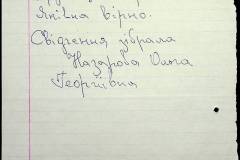 Яківна вірно.
Свідчення зібрала
Назарова Ольга
Георгіївна